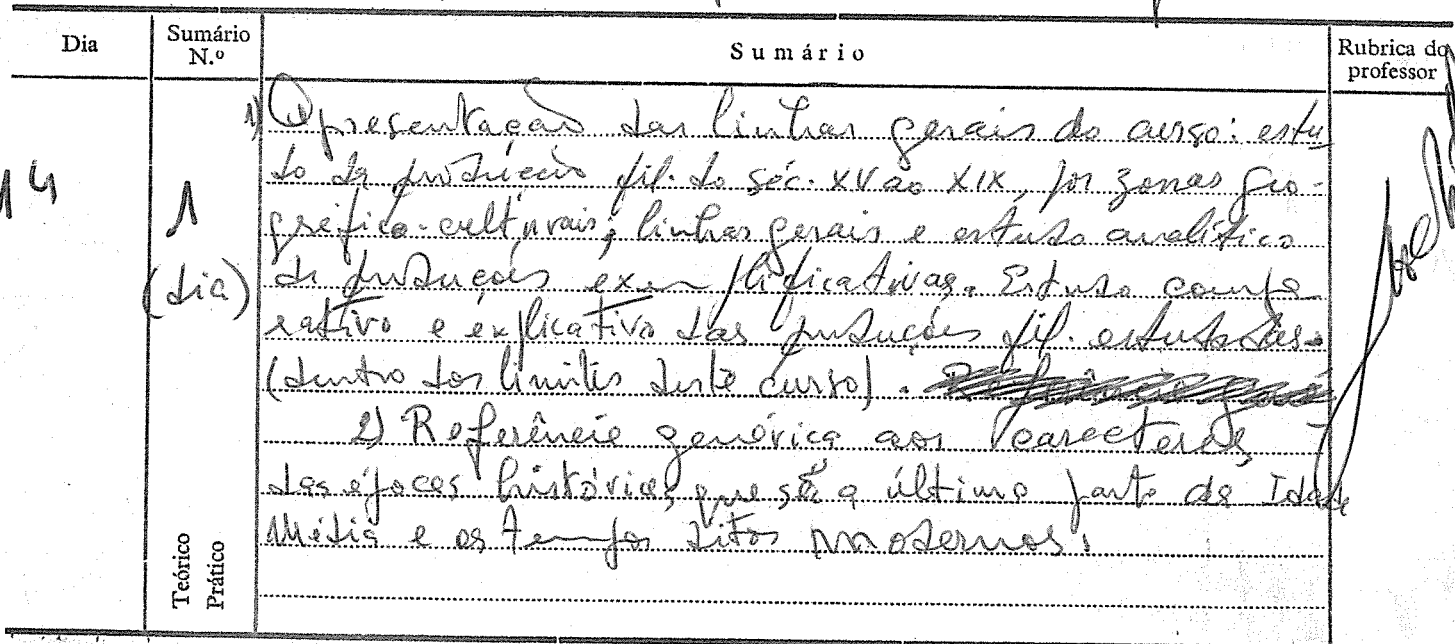 Dia
Sumário N.º
Sumário
Rubrica do professor
14
1
(dia)
Teórico
Prático
1) Apresentação das linhas gerais do curso: estu
do da produção fil. do séc. XV ao XIX, por zonas geo-
gráfico-culturais; linhas gerais e estudo analítico
de produções exemplificativas. Estudo compa
rativo e explicativo das produções fil. estudadas
(dentro dos limites deste curso).
2) Referência genérica aos caracteres
das épocas históricas, que são a última parte da Idade
Média e os tempos ditos modernos.